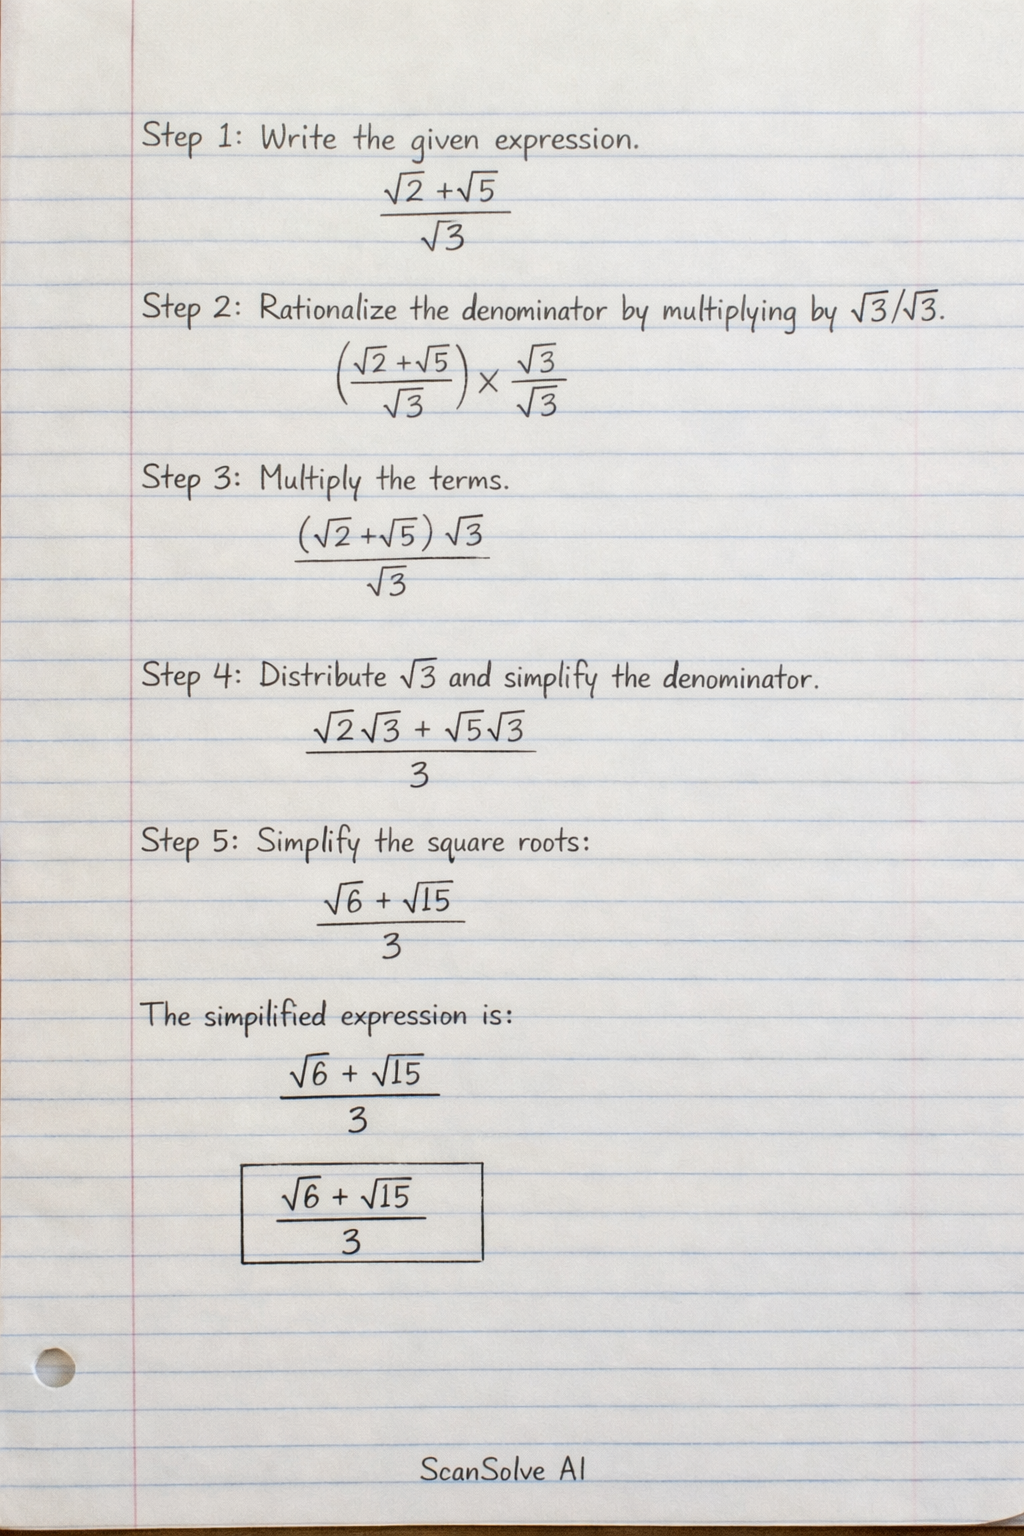 Step 1: Write the given expression.
√2 + √5
√3
Step 2: Rationalize the denominator by multiplying by √3/√3.
(√2 + √5 / √3) × √3 / √3
Step 3: Multiply the terms.
(√2 + √5) √3
√3
Step 4: Distribute √3 and simplify the denominator.
√2√3 + √5√3
3
Step 5: Simplify the square roots:
√6 + √15
3
The simpilified expression is:
√6 + √15
3
√6 + √15
3
ScanSolve AI